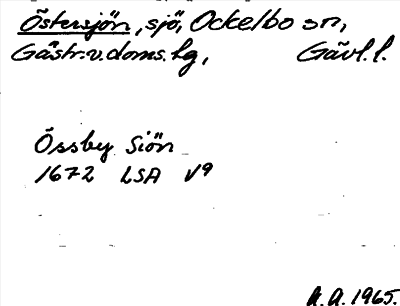 Östersjön, sjö, Ockelbo sn,
Gästr.v.doms.hg, Gävl.l.
Össby Siön
1672 LSA V9
A.A.1965.